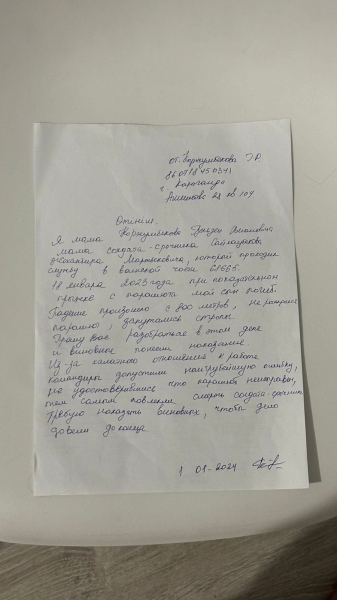 от Коржумбаева Г.А.
860718450341
г. Караганда
Өтініш.
Я мама Коржумбаева
мама солдата-срочника
Жоханжира Маратовича, который проходил
службу в воинской части 61665.
18 января 2023 года при показательном
прыжке с парашюта мой сын погиб.
Падение произошло с 800 метров, не раскрылся
парашют, запутались стропы.
Прошу Вас разобраться в этом деле
и виновные понесли наказание.
Из-за халатного отношения к работе
командиры допустили наигрубейшую ошибку,
не удостоверившись что парашют неисправен,
тем самым повлекли смерть солдата-срочника
Требую наказать виновных, чтобы дело
довели до конца.
1 01-2024